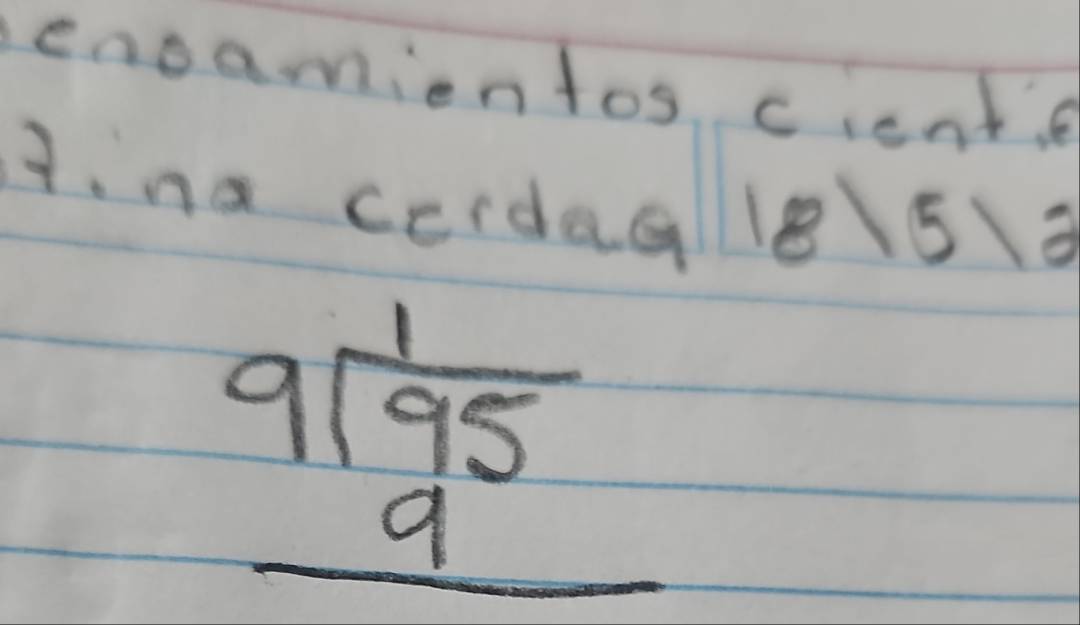 ensamientos cientif
tina cerdaa 18\5\2
1
9 95
9